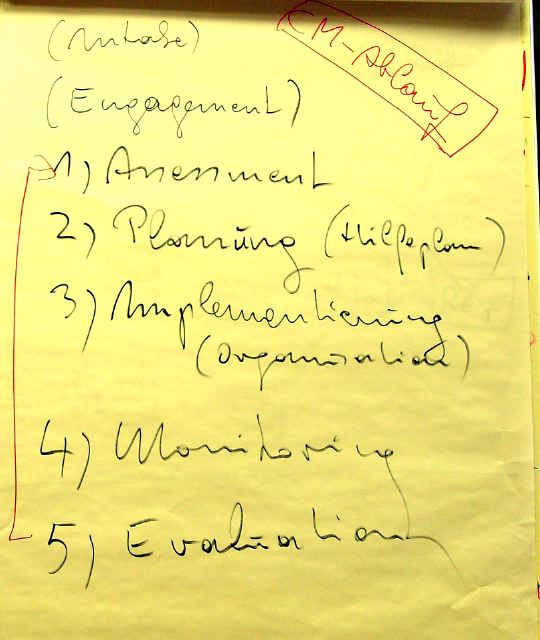 CM-Ablauf
(Intake)
(Engagement)
1) Assessment
2) Planung (Hilfeplan)
3) Implementierung
(Organisation)
4) Monitoring
5) Evaluation